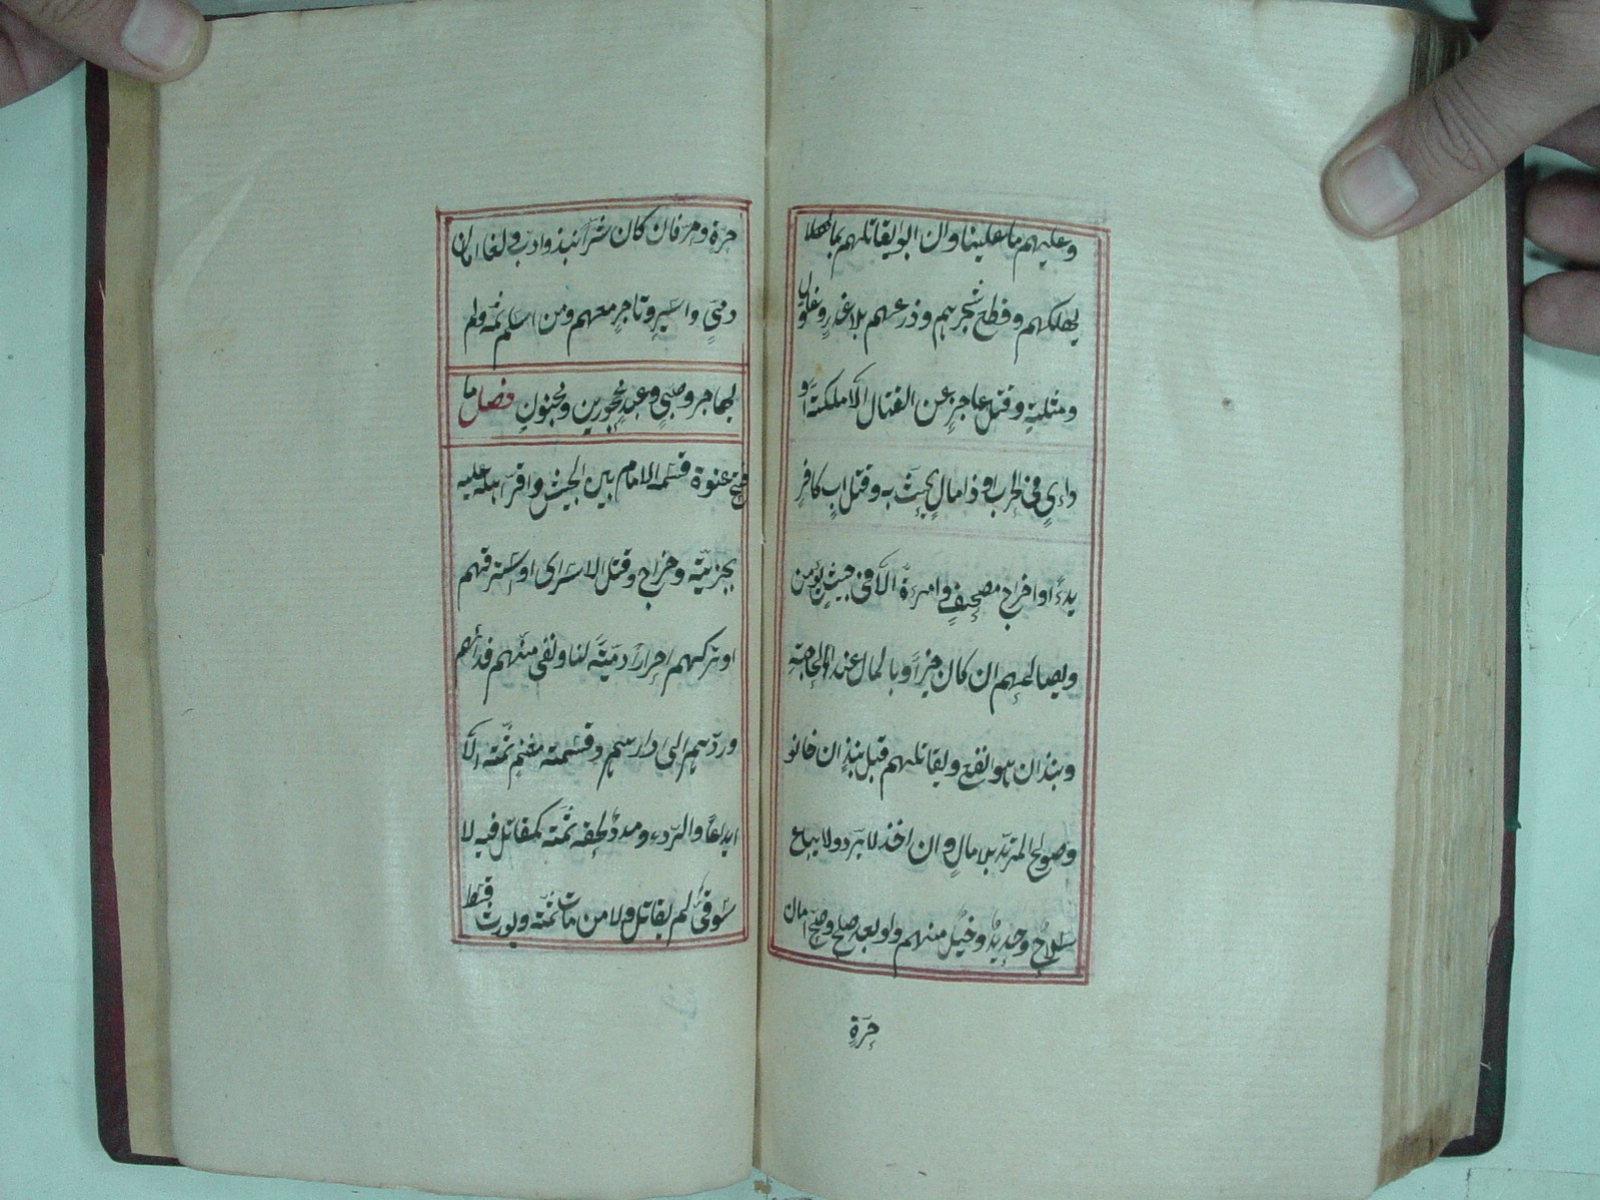 وعليهم ما علينا وان ابوا يقاتلهم بما
يهلكهم وقطع شجرهم وذرعهم بلا غدرٍ وغلولٍ
ومثلية وقتل عاجزٍ عن القتال الّا ملكته او
ذا رايٍ في الحرب او ذا مالٍ يحثّ به وقتل ابٍ كافرٍ
بدءً او اخراج مصحفٍ وامرءةً الّا في جيشٍ يؤمن
ويصالحهم ان كان خيراً وبالمال عند الحاجة
ونبذ ان هو انفع ويقاتلهم قبل نبذٍ ان خانو
وصولح المرتدّ بلا مالٍ وان اخذ لا يردّ ولا يباع
سلاحٌ وحديدٌ وخيلٌ منهم ولو بعد صلح وصحّ امان
حرّةٍ
حرّة وحرّ فان كان شرّاً نبذ وادب ولغا امان
ذمّيٍ واسيرٍ وتاجرٍ معهم ومن اسلم ثمّه ولم
يهاجر وصبيٍ وعبدٍ محجورين ومجنونٍ فصل ما
فتح عنوة قسّمه الامام بين الجيش واقرّ اهله عليه
بجزيّة وخراج وقتل الاسرى او استرقّهم
او تركهم احراراً ذمّيّةً لنا ونفى منّهم فدائهم
وردّهم الى دارهم وقسمته مغنم ثمّه الّا
ايداعاً والرّدء ومددٌ لحقه ثمّة كمقاتل فيه لا
سوقيٌ لم يقاتل ولا من مات ثمّه ويورث قسط